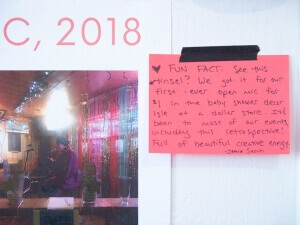 C, 2018
♥ FUN FACT: See this
tinsel? We got it for our
first-ever open mic for
$1 in the baby shower decor
isle at a dollar store. It's
been to most of our events,
including this retrospective!
Full of beautiful creative energy.